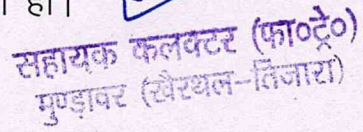 हो।
सहायक कलक्टर (फा०ट्रे०)
मुण्डावर (खैरथल-तिजारा)